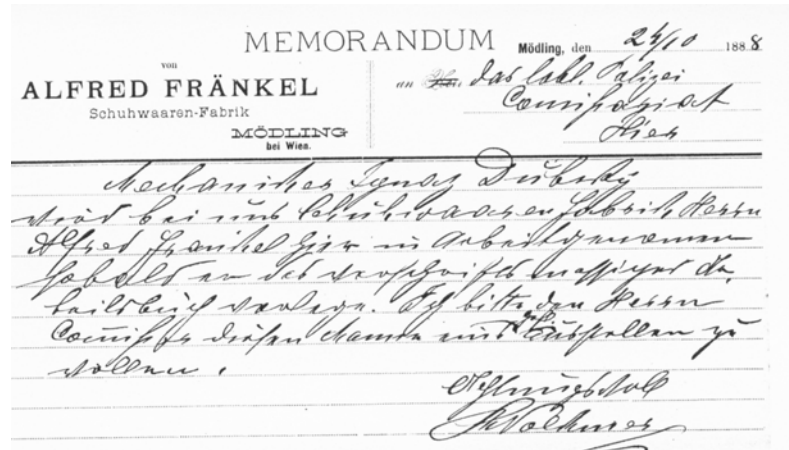 MEMORANDUM
Mödling, den 24/10 1888
von
ALFRED FRÄNKEL
Schuhwaaren-Fabrik
MÖDLING
bei Wien.
an das löbl. Polizei
Comissariat
Hier
Mechaniker Ignaz Dubsky
wird bei uns Schuhwaaren Fabrik Herrn
Alfred Frankel hier in Arbeit genomen
sobald er das vorschriftsmassiges Ar,
beitsbuch vorlege. Ich bitte den Herrn
Comissar diesen Manne eins ausstellen zu
wollen.
Achtungsvoll